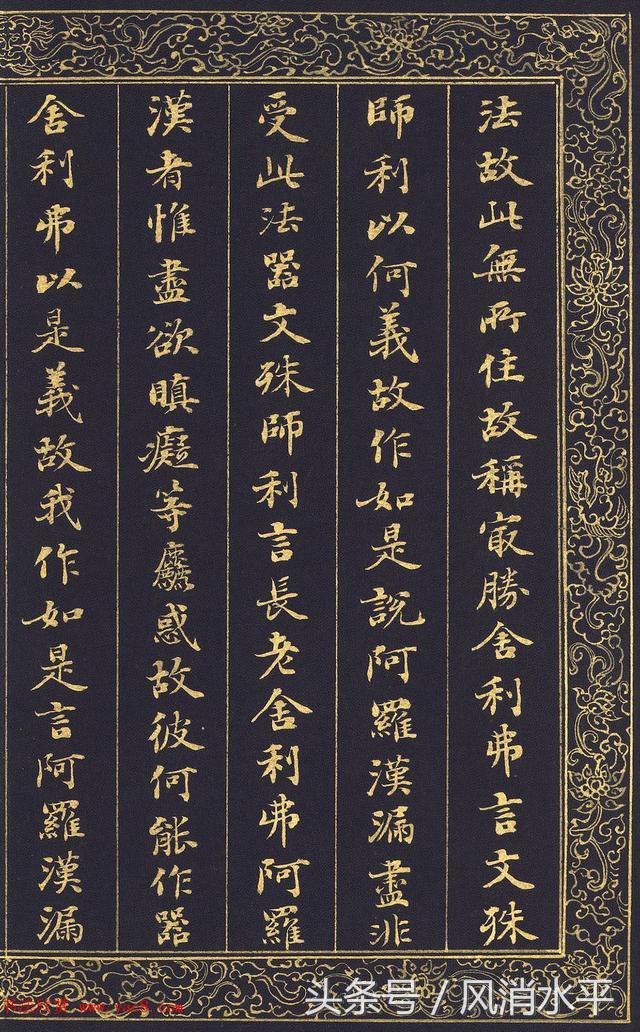 法故此無所住故稱㝡勝舍利弗言文殊
師利以何義故作如是說阿羅漢漏盡非
受此法器文殊師利言長老舍利弗阿羅
漢者惟盡欲瞋癡等麤惑故彼何能作器
舍利弗以是義故我作如是言阿羅漢漏
头条号 / 风消水平